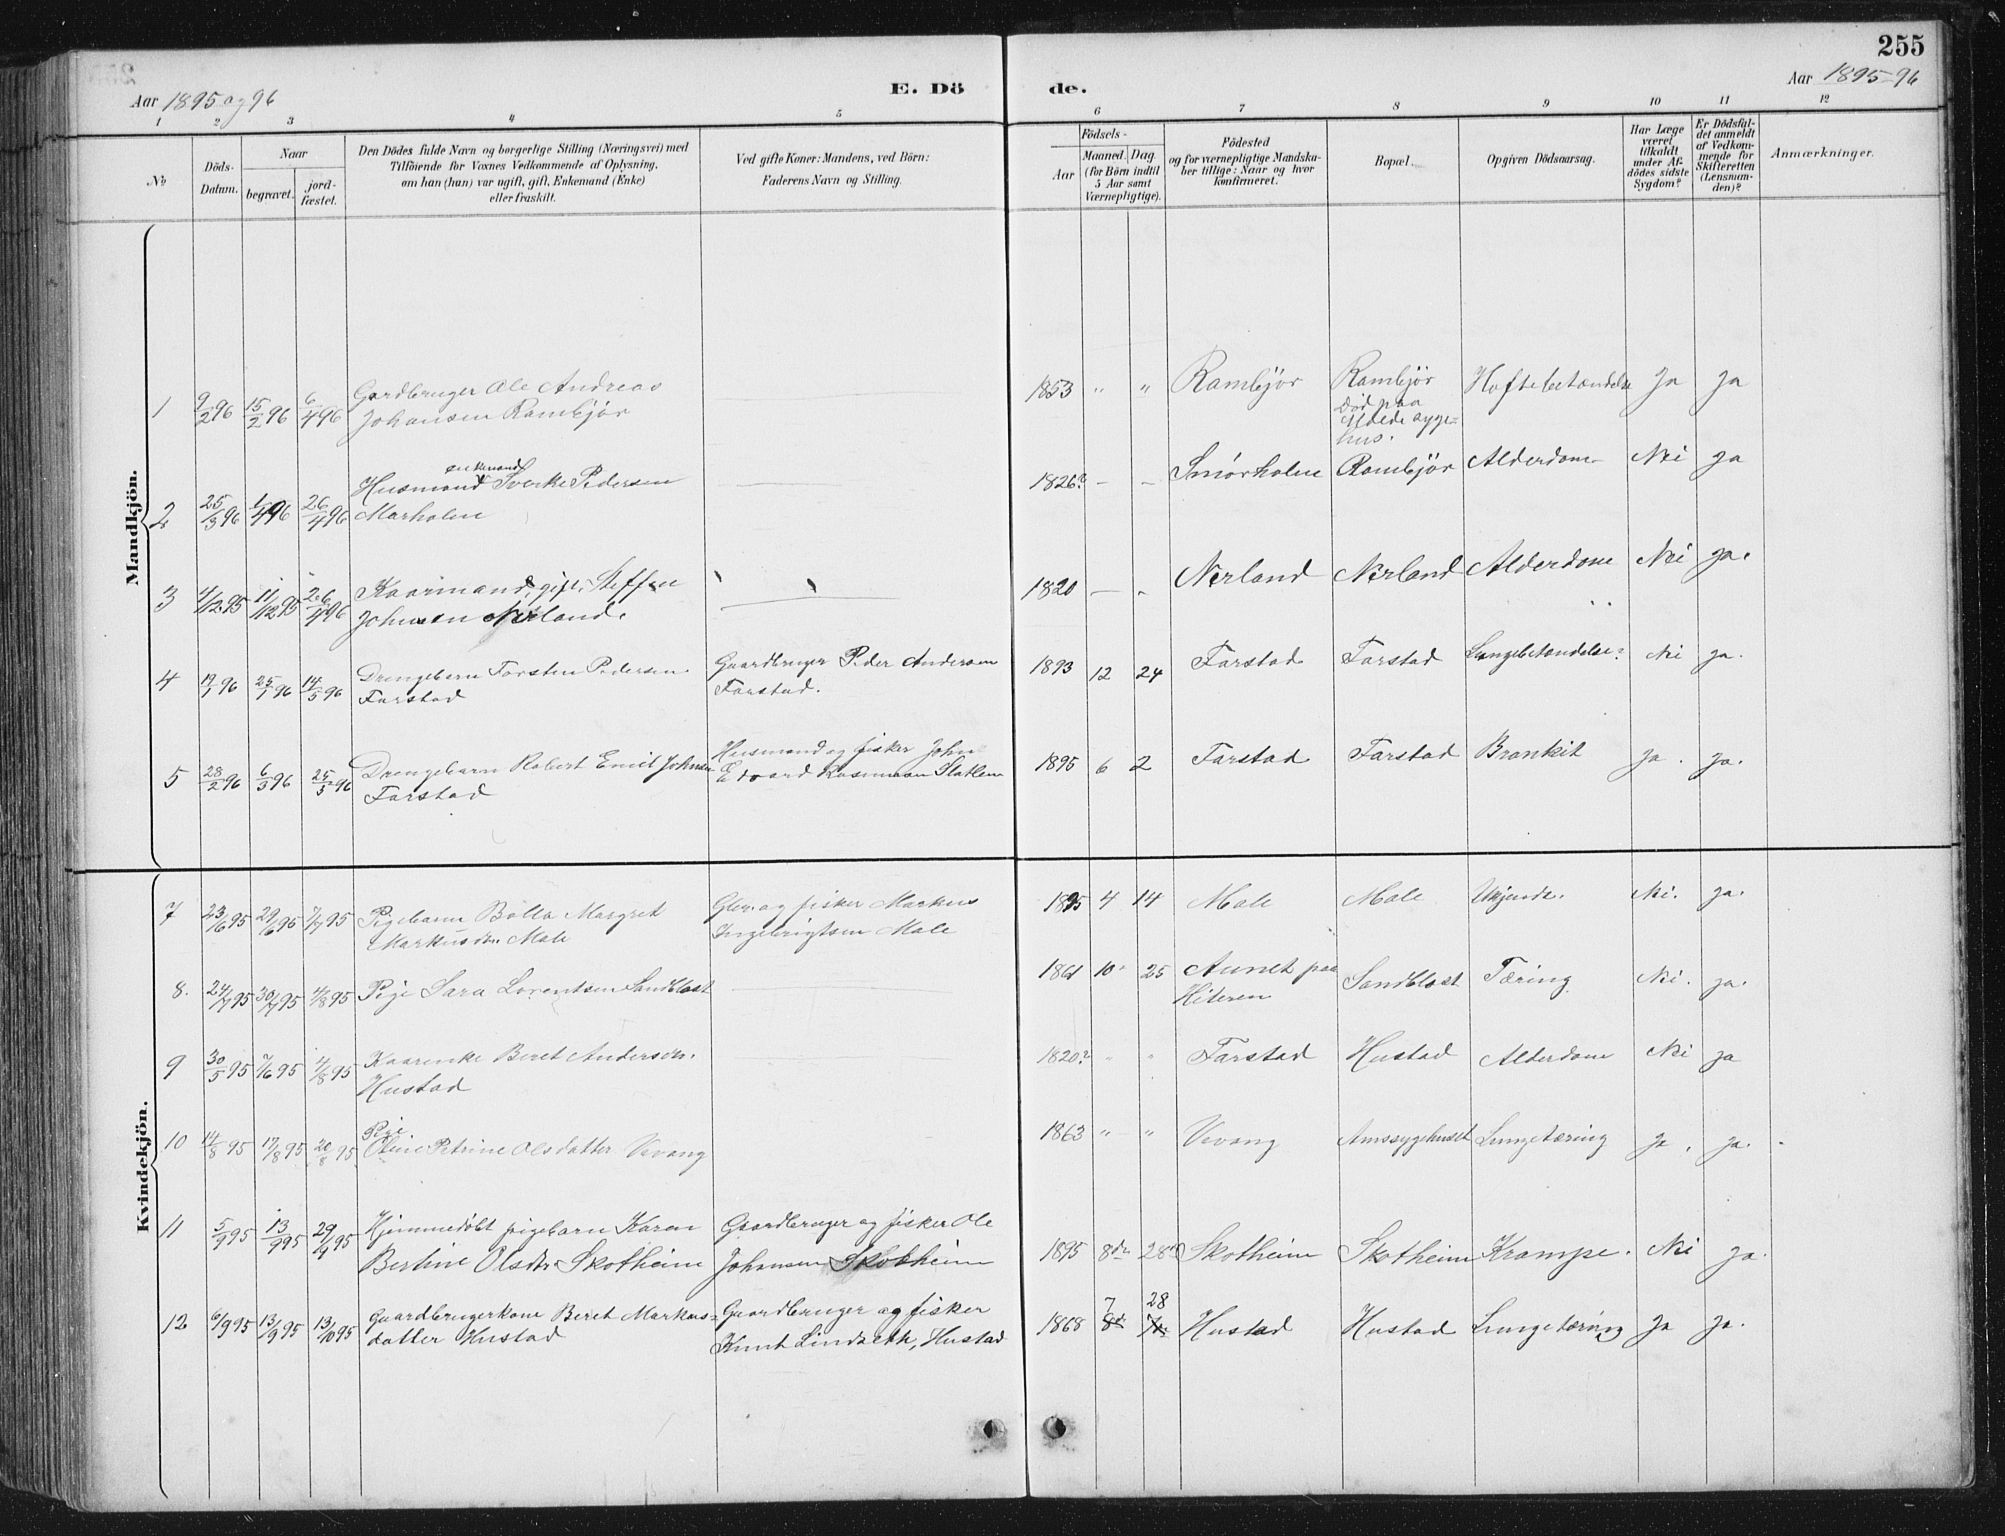 255
Aar 1895 og 96
E. Dö
de.
Aar 1895-96
1 2 3 4 5 6 7 8 9 10 11 12
No
Döds-Datum.
Naar
begravet.
jord-fæstet.
Den Dödes fulde Navn og borgerlige Stilling (Næringsvei) med
Tilföiende for Voxnes Vedkommende af Oplysning,
om han (hun) var ugift, gift, Enkemand (Enke)
eller fraskilt.
Ved gifte Koner: Mandens, ved Börn:
Faderens Navn og Stilling.
Födsels-
Aar
Maaned. Dag
(for Börn indtil
5 Aar samt
Værnepligtige).
Födested
og for værnepligtige Mandska-
ber tillige: Naar og hvor
konfirmeret.
Bopæl.
Opgiven Dödsaarsag.
Har Læge
været
tilkaldt
under Af-
dödes sidste
Sygdom?
Er Dödsfal-
det anmeldt
af Vedkom-
mende for
Skifteretten
(Lensman-
den)?
Anmærkninger.
Mandkjön.
1 9/2 96 15/2 96 6/4 96 Gardbruger Ole Andreas
Johansen Rambjör
1853 " " Rambjör Rambjör Hoftebetændelse Ja Ja
Död paa
Molde syge-
hus.
enkemand
2 25/3 96 1/4 96 26/4 96 Husmand Sverke Pedersen
Marholm
1826? - - Smörholm Rambjör Alderdom Nei Ja
3 4/12 95 11/12 95 26/4 96 Kaarmand, gift, Steffen
Johnsen Nerland.
1820 - - Nerland Nerland Alderdom Nei Ja.
4 19/1 96 25/1 96 14/5 96 Drengebarn Torsten Pedersen
Farstad
Gaardbruger Peder Andersen
Farstad.
1893 12 24 Farstad Farstad Lungebetændelse? Nei Ja.
5 28/2 96 6/3 96 25/5 96 Drengebarn Robert Emil Johnsen
Farstad
Husmand og fisker John
Edvard Rasmussen Slatlem
1895 6 2 Farstad Farstad Bronkit Ja. Ja.
Kvindekjön.
7 23/6 95 29/6 95 7/7 95 Pigebarn Bolla Margret
Markusdtr. Male
Gbr. og fisker Markus
Ingebrigtsen Male
1895 4 14 Male Male Ukjendt. Nei. Ja.
8. 24/7 95 30/7 95 4/8 95 Pige Sara Lorentsen Sandblast
1861 10 25 Aunet paa
Hiteren
Sandblast Tæring Nei. Ja.
9 30/5 95 7/6 95 4/8 95 Kaarenke Beret Andersdtr.
Hustad
1820? " " Farstad Hustad Alderdom Nei Ja
10 14/8 95 17/8 95 20/8 95 Pige
Oline Petrine Olsdatter Vevang
1863 " " Vevang Amssygehuset Lungetæring Ja. Ja.
11 5/9 95 13/9 95 29/9 95 Hjemmedöbt pigebarn Karen
Bertine Olsdtr. Skotheim
Gaardbruger og fisker Ole
Johansen Skotheim
1895 8de 28de Skotheim Skotheim Krampe. Nei Ja.
12 6/9 95 13/9 95 13/10 95 Gaardbrugerkone Beret Markus-
datter Hustad
Gaardbruger og fisker
Knut Lindsetk, Hustad
1868 7 28 Hustad Hustad Lungetæring Ja Ja.